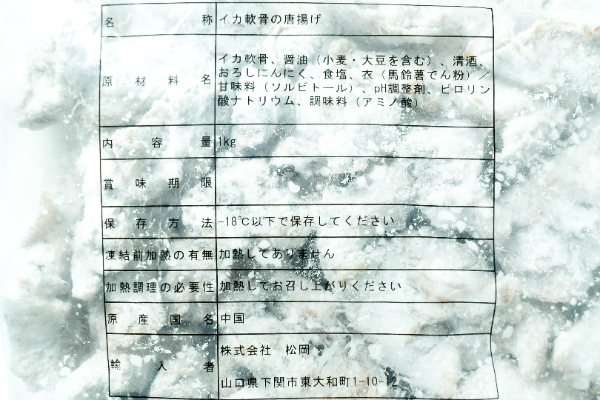 名称 イカ軟骨の唐揚げ
原材料名 イカ軟骨、醤油（小麦・大豆を含む）、清酒、
おろしにんにく、食塩、衣（馬鈴薯でん粉）／
甘味料（ソルビトール）、pH調整剤、ピロリン
酸ナトリウム、調味料（アミノ酸）
内容量 1kg
賞味期限
保存方法 -18℃以下で保存してください
凍結前加熱の有無 加熱してありません
加熱調理の必要性 加熱してお召し上がりください
原産国名 中国
輸入者 株式会社 松岡
山口県下関市東大和町1-10-12